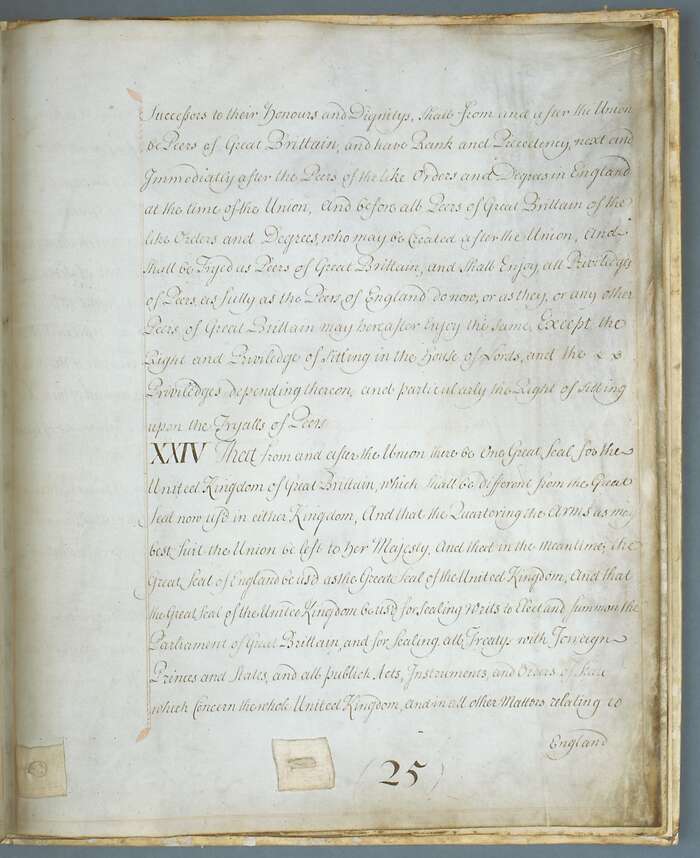 Successors to their Honours and Dignitys, Shall from and after the Union
be Peers of Great Brittain, and have Rank and Precedency, next and
Immediatly after the Peers of the like Orders and Degrees in England
at the time of the Union, And before all Peers of Great Brittain of the
like Orders and Degrees, who may be Created after the Union, And
shall be Tryed as Peers of Great Brittain, and Shall Enjoy all Priviledges
of Peers, as fully as the Peers of England do now, or as they, or any other
Peers of Great Brittain may hereafter Enjoy the same, Except the
Right and Priviledge of Sitting in the House of Lords, and the
Priviledges depending thereon, and particularly the Right of Sitting
upon the Tryalls of Peers
XXIV That from and after the Union there be One Great Seal for the
United Kingdom of Great Brittain, which shall be different from the Great
Seal now us'd in either Kingdom, And that the Quartering the Arms as may
best suit the Union be left to her Majesty, And that in the meantime, the
Great Seal of England be us'd as the Great Seal of the United Kingdom, And that
the Great Seal of the United Kingdom be us'd for Sealing Writs to Elect and summon the
Parliament of Great Brittain, and for Sealing all Treatys with Foreign
Princes and States, and all publick Acts, Instruments, and Orders of State
which Concern the whole United Kingdom, and in all other Matters relating to
England
(25)